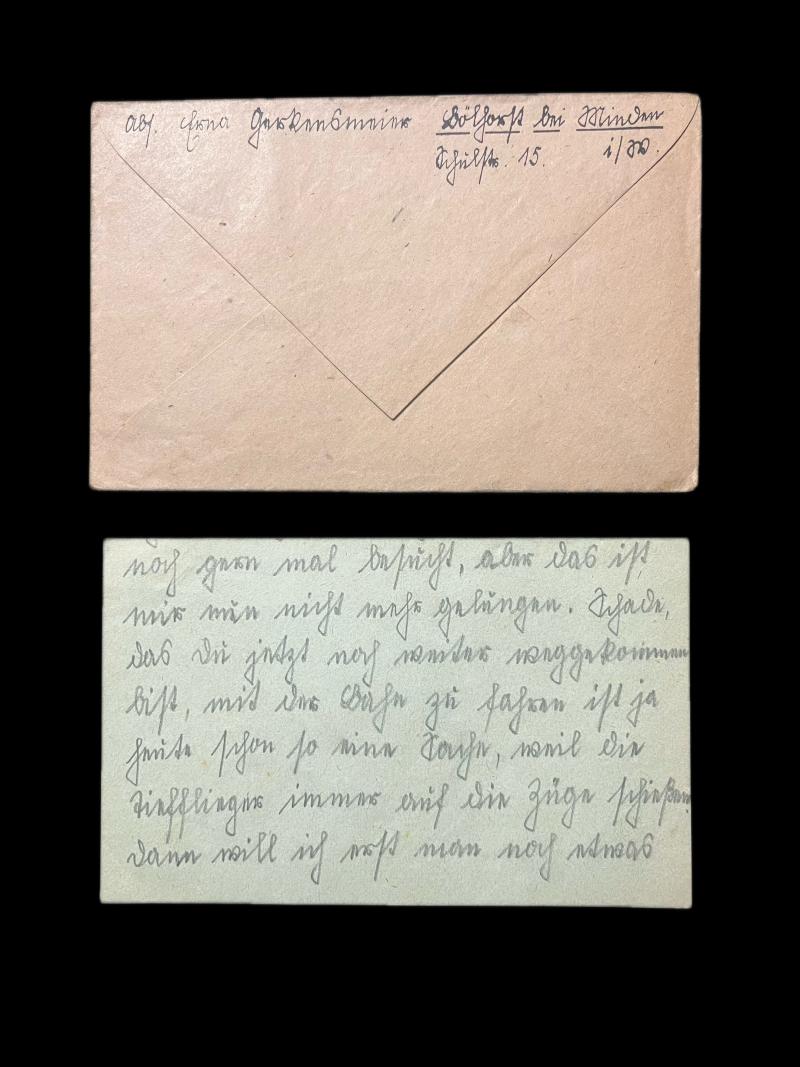 Abs. Erna Gerkensmeier Bölhorst bei Minden
Schulstr. 15. i/W.
noch gern mal besucht, aber das ist
mir nun nicht mehr gelungen. Schade,
das Du jetzt noch weiter weggekommen
bist, mit der Bahn zu fahren ist ja
heute schon so eine Sache, weil die
Tiefflieger immer auf die Züge schießen
dann will ich erst man noch etwas